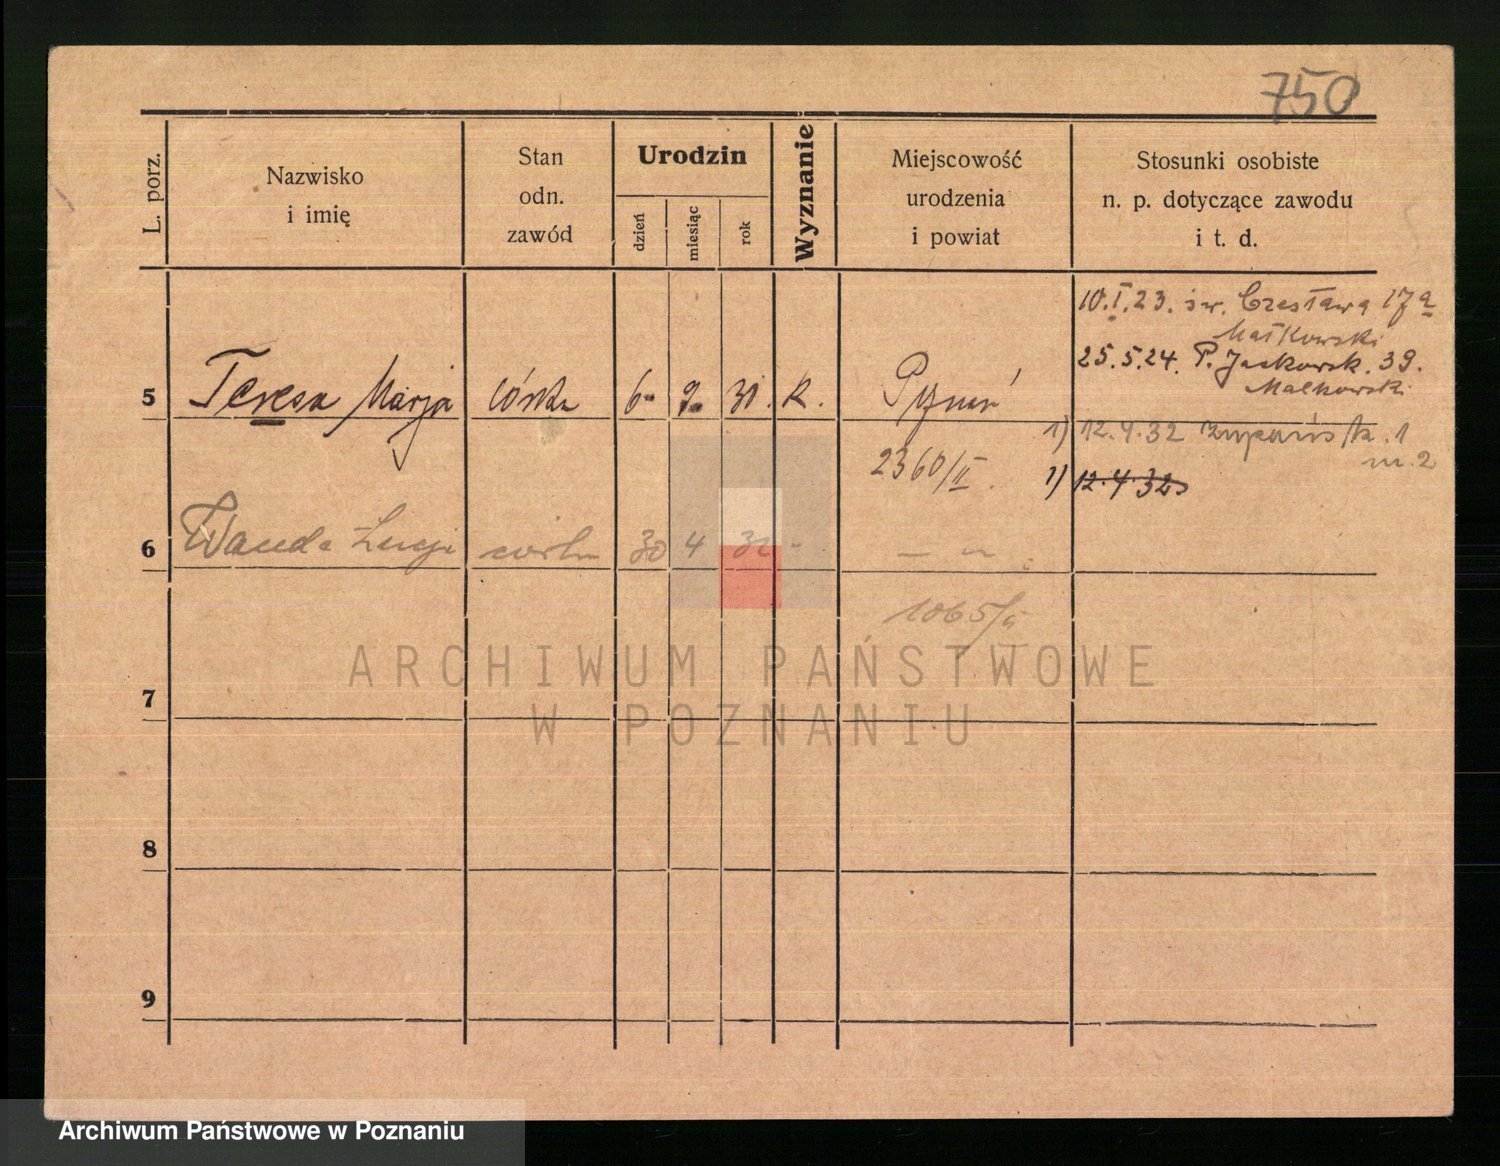 750
L. porz.
Nazwisko
i imię
Stan
odn.
zawód
Urodzin
dzień
miesiąc
rok
Wyznanie
Miejscowość
urodzenia
i powiat
Stosunki osobiste
n. p. dotyczące zawodu
i t. d.
10.I.23. św. Czesława 17a
Małkowski
25.5.24. P. Jaskowsk. 39.
Malkowski
5 Teresa Marja córka 6 9 30. k. Pznań
1) 12.4.32 1
m. 2
2360/II.
1) 12.4.32
6 Wanda Łucja córka 30 4 32 - — „ —
1065/II
7
8
9
ARCHIWUM PAŃSTWOWE
W POZNANIU
Archiwum Państwowe w Poznaniu